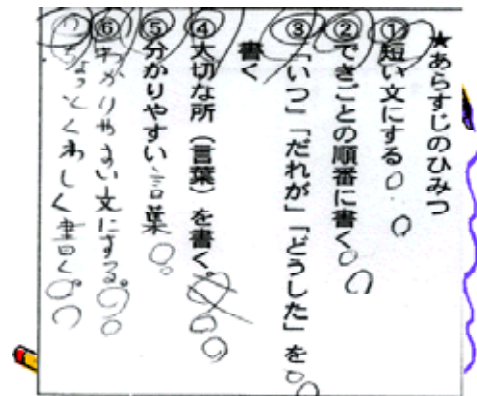 ★あらすじのひみつ
①短い文にする
②できごとの順番に書く
③「いつ」「だれが」「どうした」を
書く
④大切な所（言葉）を書く
⑤分かりやすい言葉
⑥わかりやすい文にする。
くわしく書く